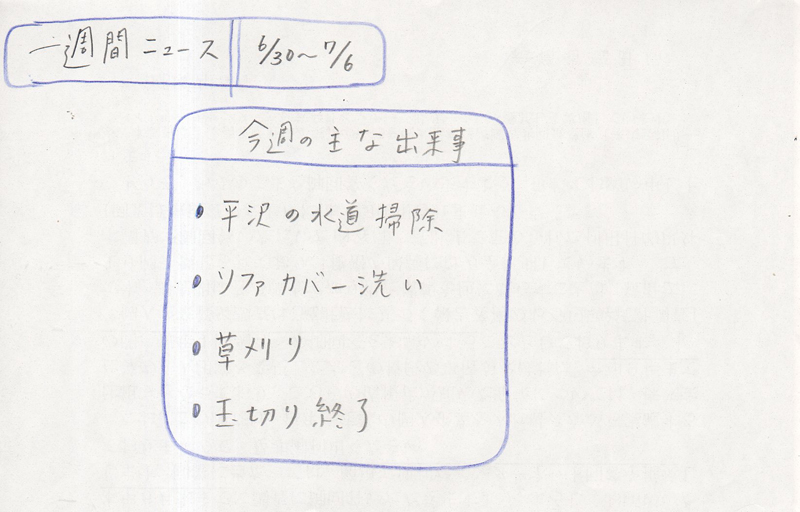 一週間ニュース 6/30～7/6
今週の主な出来事
• 平沢の水道掃除
• ソファカバー洗い
• 草刈り
• 玉切り終了